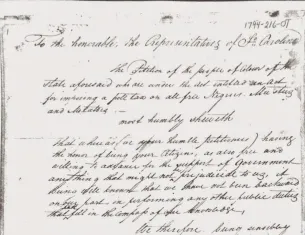 1794-216-01
To the honorable, the Representatives of So Carolina
The Petition of the people of colour of the
state aforesaid who are under the act intitled an act
for imposing a poll tax on all free Negroes, Mustees
and Mulatoes —
most humbly sheweth
That whereas (we your humble petitioners) having
the honor of being your Citizens, as also free and
willing to advance for the support of Government
anything that might not be prejudicial to us, &
it being well known that we have not been backward
on our part, in performing any other public duties
that fell in the compass of our knowledge,
We therefore being